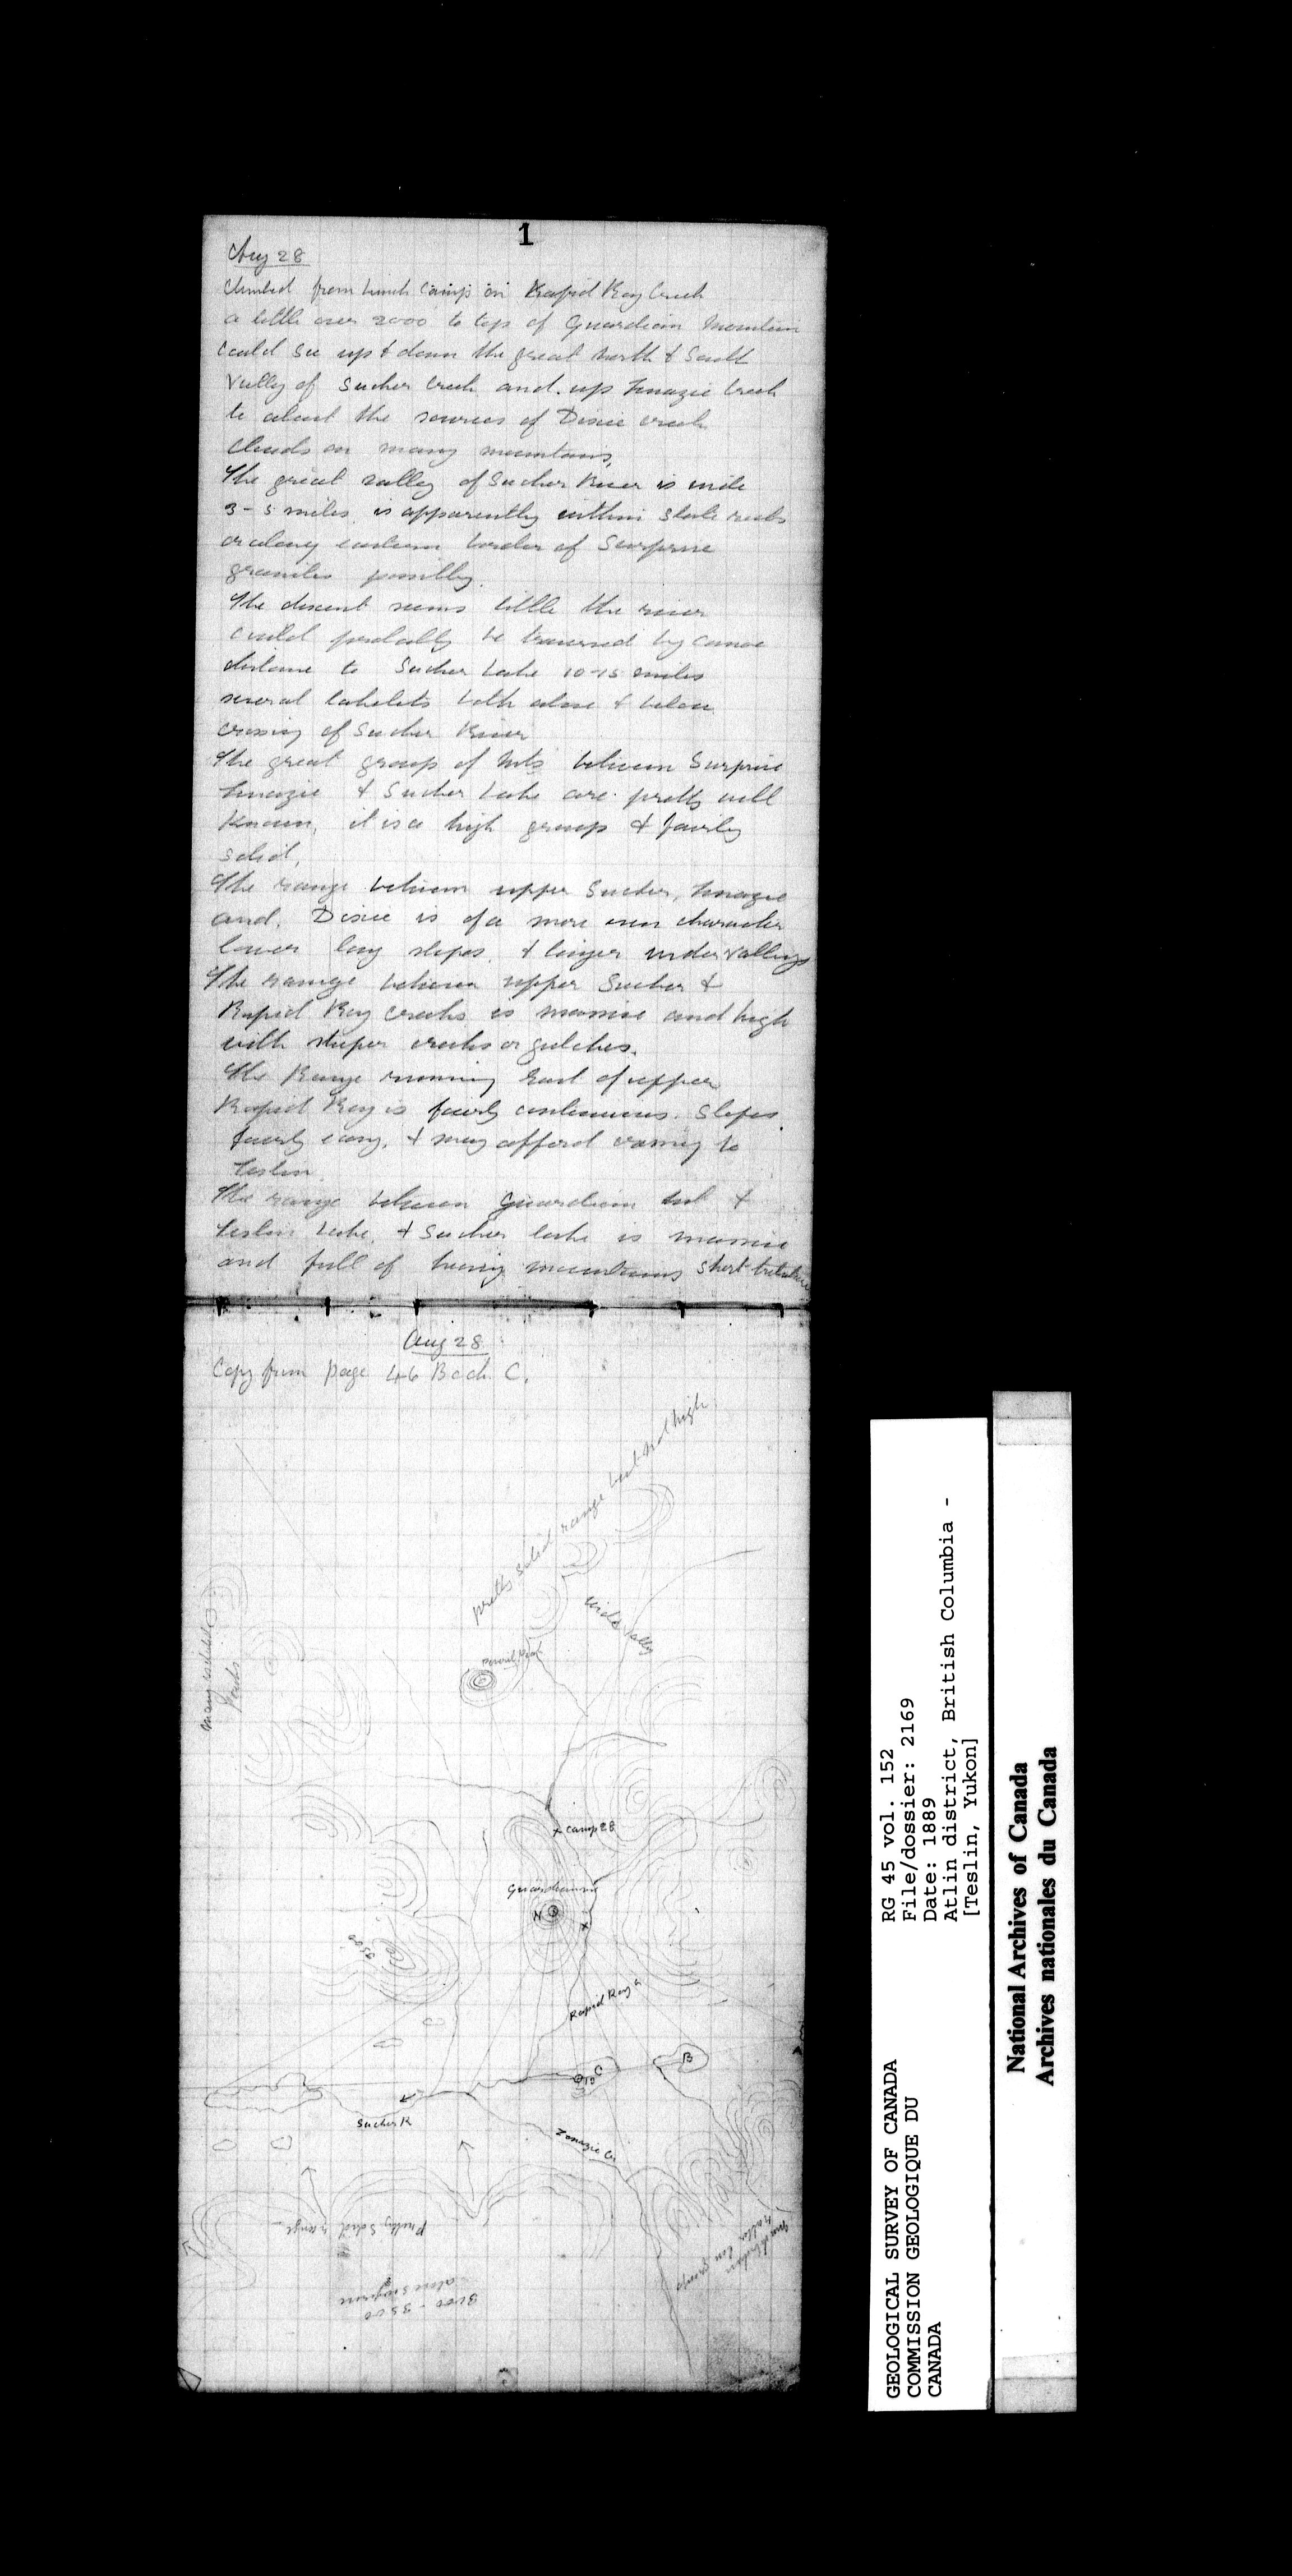 1
Aug 28
Climbed from lunch camp on Rapid Roy Creek
a little over 2000 to top of Guardian Mountain
could see up & down the great North & South
Valley of Sucker Creek and up Zenazie Creek
to about the sources of Disie creek
Clouds on many mountains,
The great valley of Sucker River is wide
3-5 miles is apparently within slate rocks
or along eastern border of Surprise
granites possibly.
The descent seems little the river
could probably be traversed by canoe
distance to Sucker Lake 10-15 miles
several lakelets both above & below
crossing of Sucker River
The great group of Mts between Surprise
Zenazie & Sucker Lake are pretty well
known, it is a high group & fairly
solid,
The range between upper Sucker, Zenazie
and Disie is of a more even character
lower long slopes, & longer wider valleys
The range between upper Sucker &
Rapid Roy creeks is massive and high
with steeper creeks or gulches.
The Range running East of upper
Rapid Roy is fairly continuous. Slopes
fairly easy, & may afford crossing to
Teslin
The range between Guardian &
Teslin Lake, & Sucker lake is massive
and full of mountains short
Aug 28
Copy from page 46 Book C.
pretty solid range but not high
wide valley
many isolated
Peaks
x Camp 28
Guardian
N
x
5500
Rapid Roy
B
C
Sucker R
Zenazie Cr
Pretty solid range
3000 - 3500
above Surprise
GEOLOGICAL SURVEY OF CANADA
COMMISSION GEOLOGIQUE DU
CANADA
RG 45 vol. 152
File/dossier: 2169
Date: 1889
Atlin district, British Columbia -
[Teslin, Yukon]
National Archives of Canada
Archives nationales du Canada